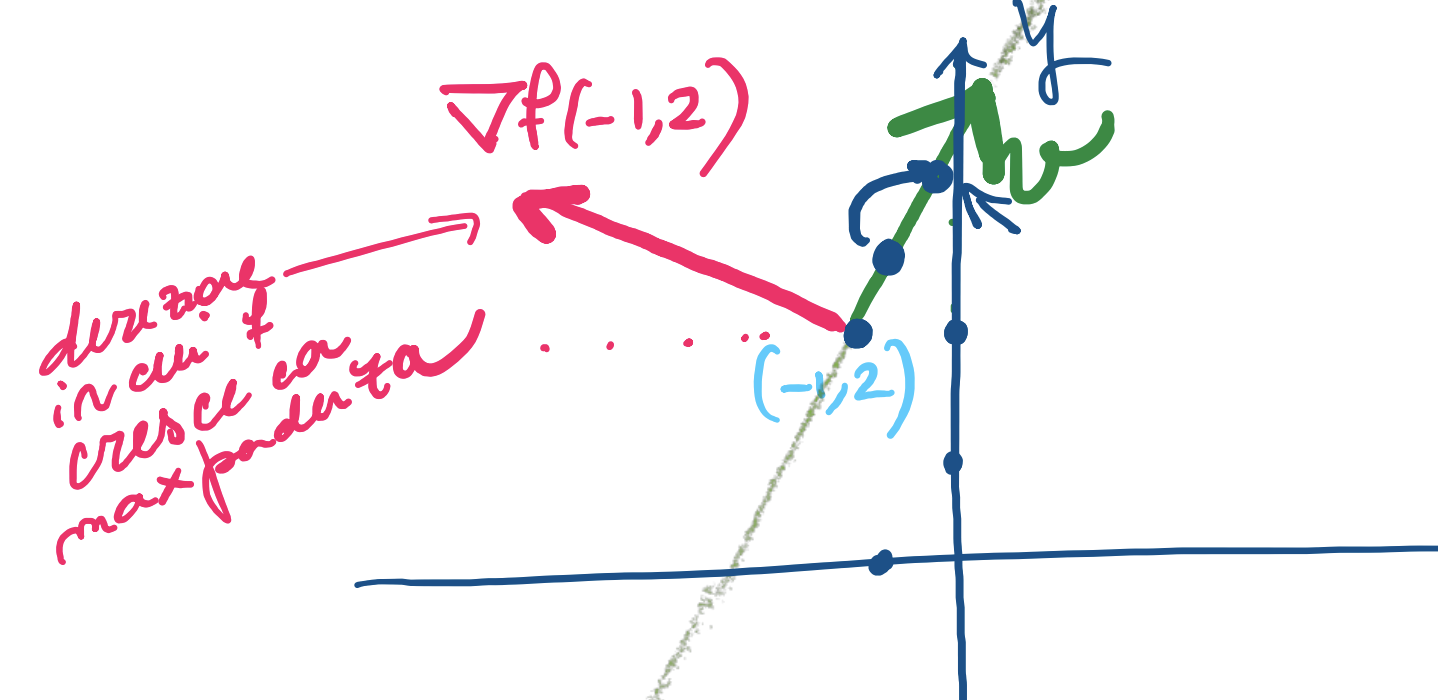 y
∇f(-1,2)
w
direzione
in cui f
cresce con
max pendenza
(-1,2)